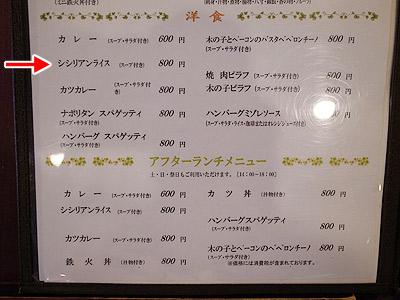 ミニ鉄火丼付き
洋食
カレー (スープ・サラダ付き) 600 円
木の子とベーコンのパスタペペロンチーノ (スープ・サラダ付き) 800 円
シシリアンライス (スープ付き) 800 円
焼肉ピラフ (スープ・サラダ付き) 800 円
カツカレー (スープ・サラダ付き) 800 円
木の子ピラフ (スープ・サラダ付き) 800 円
ナポリタン スパゲッティ (スープ・サラダ付き) 800 円
ハンバーグミゾレソース 800 円
(スープ・サラダ・ライス・珈琲またはオレンジジュース付き)
ハンバーグ スパゲッティ (スープ・サラダ付き) 800 円
アフターランチメニュー
土・日・祭日もご利用いただけます。 [14:00～18:00]
カレー (スープ・サラダ付き) 600 円
カツ丼 (汁物付き) 800 円
シシリアンライス (スープ付き) 800 円
ハンバーグスパゲッティ (スープ・サラダ付き) 800 円
カツカレー (スープ・サラダ付き) 800 円
木の子とベーコンのペペロンチーノ (スープ・サラダ付き) 800 円
鉄火丼 (汁物付き) 800 円
※価格には消費税が含まれております。